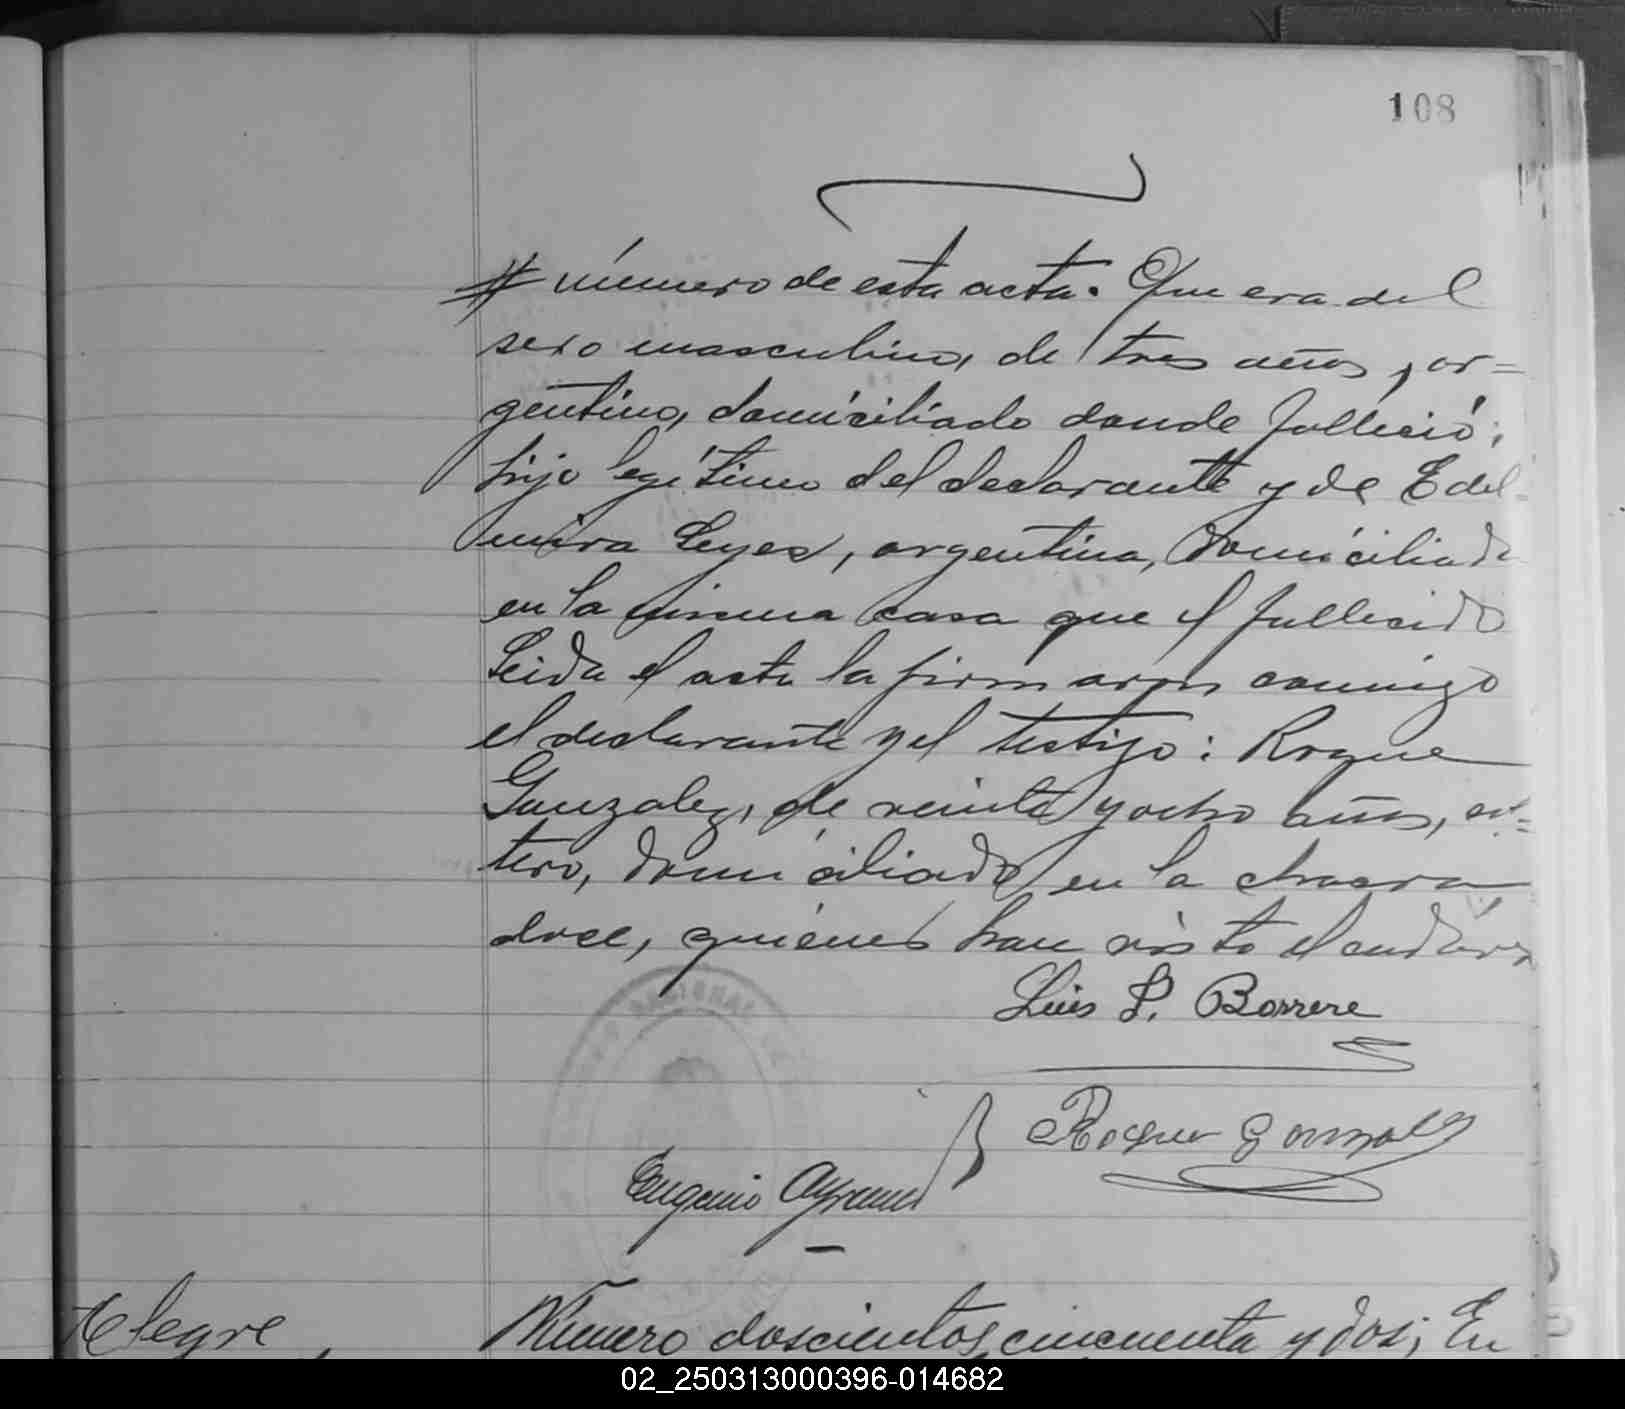 108
# número de esta acta. Que era del
sexo masculino, de tres años, ar=
gentino, domiciliado donde falleció;
hijo legítimo del declarante y de Edel=
mira Leyes, argentina, domiciliada
en la misma casa que el fallecido
Leida el acta la firmaron conmigo
el declarante y el testigo: Roque
Gonzalez, de veinte y ocho años, sol=
tero, domiciliado en la chacra
doce, quienes han visto el cadáver
Luis S. Borrere
Roque Gonzalez
Eugenio
Alegre
Número doscientos cincuenta y dos; En
02_250313000396-014682